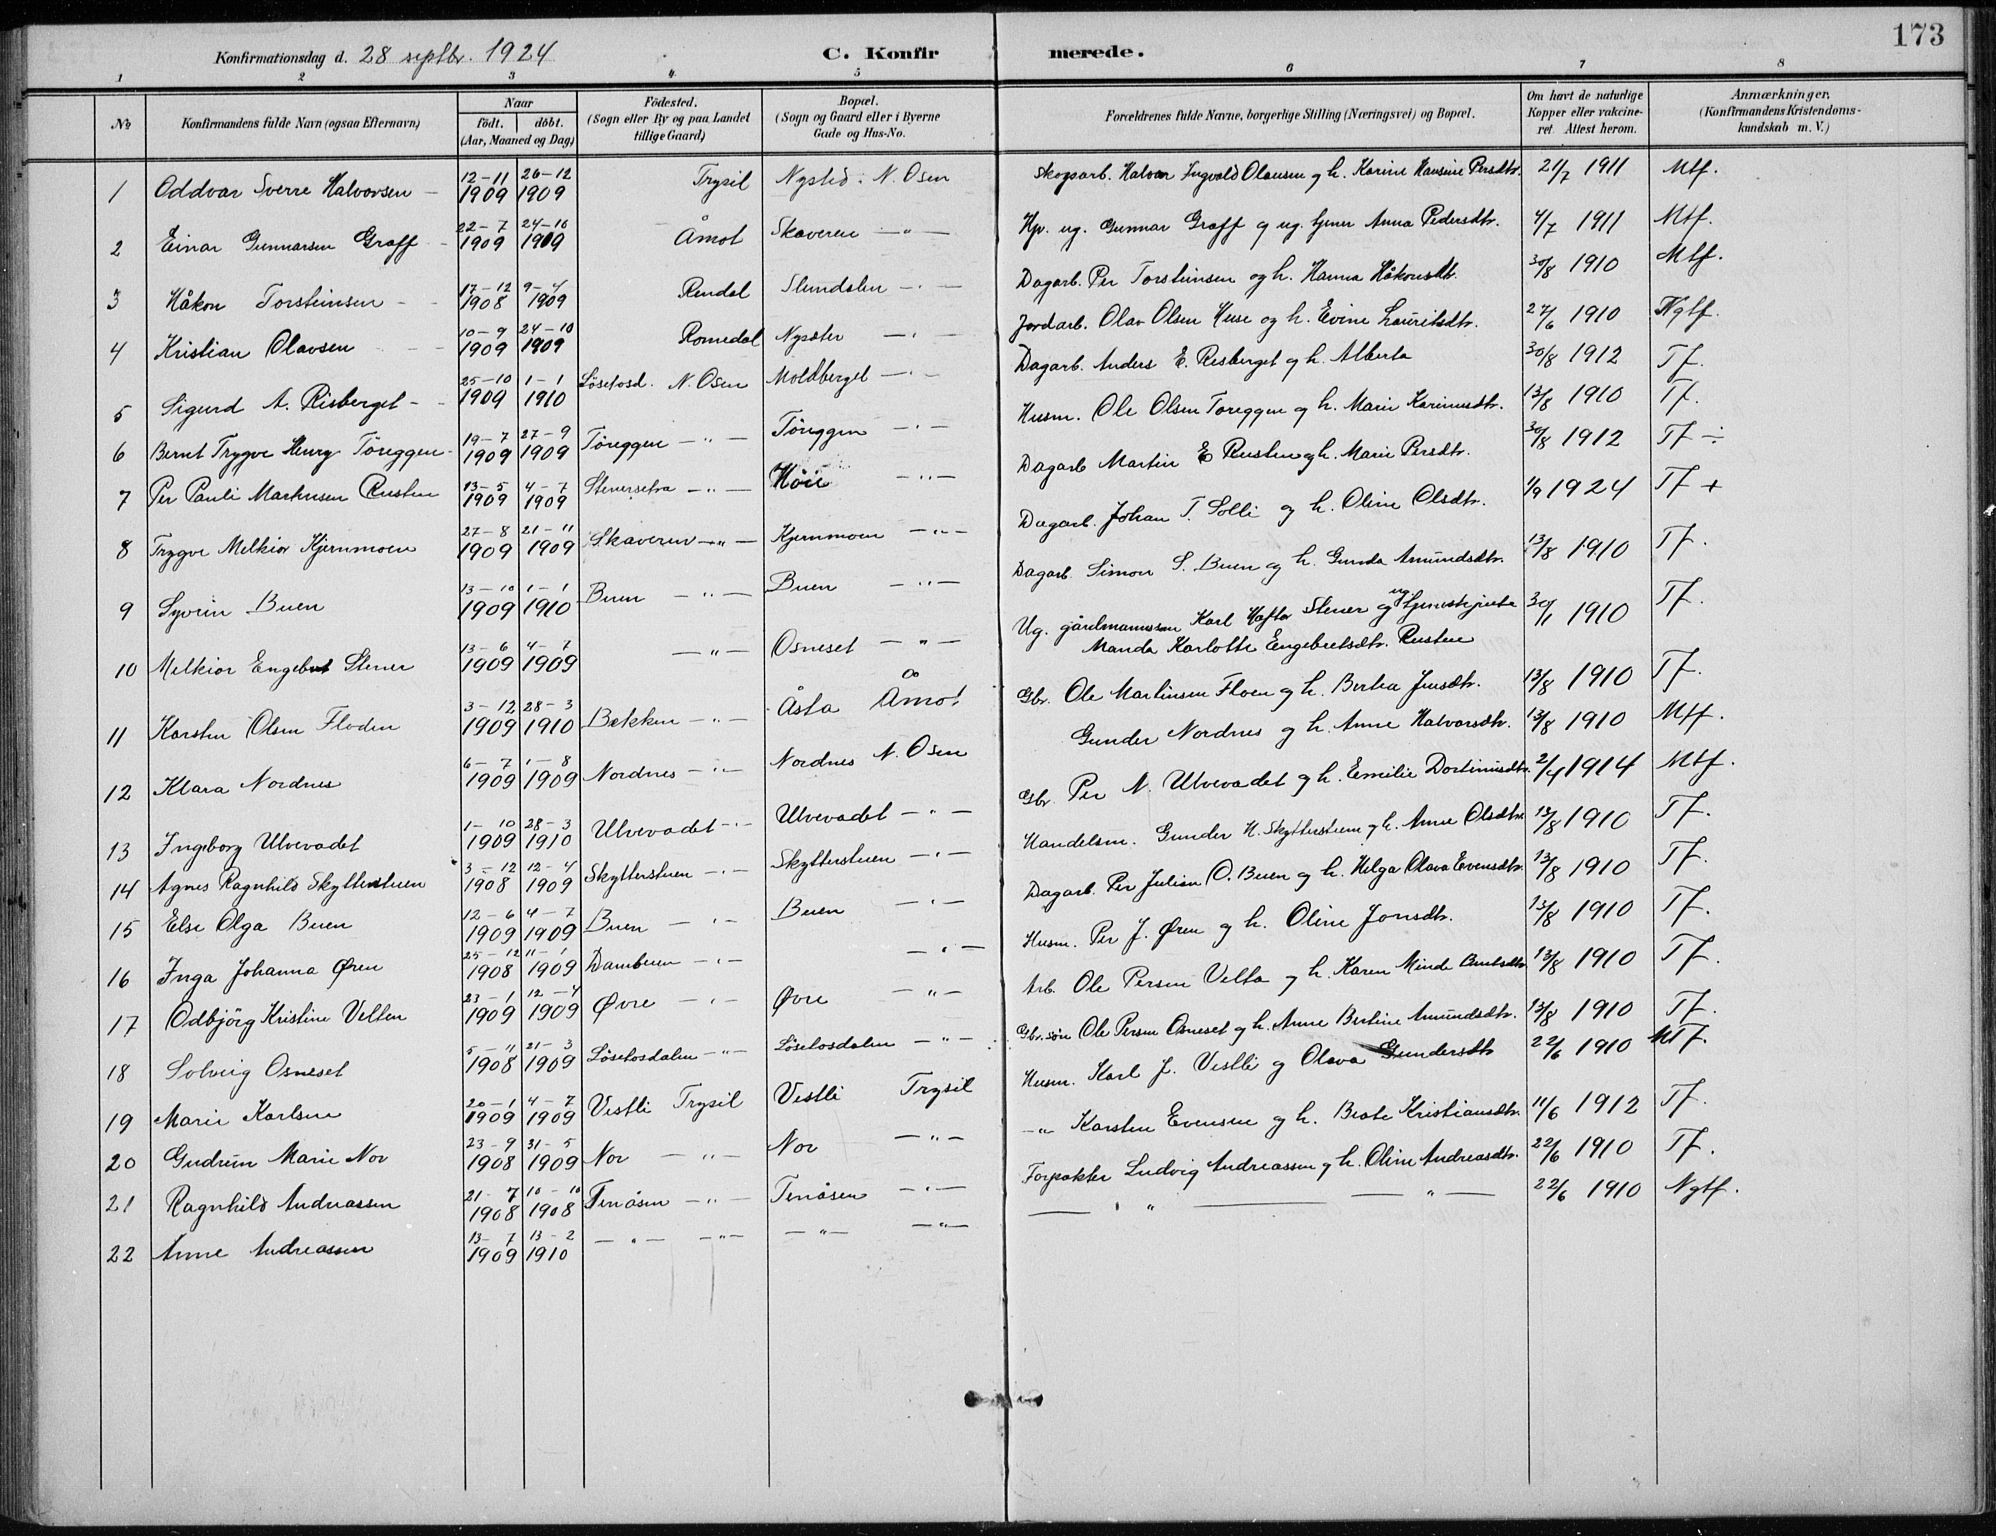 173
Konfirmationsdag d. 28 septbr. 1924 C. Konfirmerede.
1 2 3 4 5 6 7 8
No Konfirmandens fulde Navn (ogsaa Efternavn) Naar født. døbt. (Aar, Maaned og Dag) Fødested. (Sogn eller By og paa Landet tillige Gaard) Bopæl. (Sogn og Gaard eller i Byerne Gade og Hus-No. Forældrenes fulde Navne, borgerlige Stilling (Næringsvei) og Bopæl. Om havt de naturlige Kopper eller vakcineret. Attest herom. Anmærkninger, (Konfirmandens Kristendomskundskab m. V.)
1 Oddvar Sverre Halvorsen 12-11 1909 26-12 1909 Trysil Nysted N. Osen Skogsarb. Halvor Ingvald Olausen og h. Karine Hansine Persdtr. 21/7 1911 Mtf.
2 Einar Gunnarsen Graff 22-7 1909 24-10 1909 Åmot Skaveren -"- Hp. ug. Gunnar Graff og ug. tjener Anna Pedersdtr. 4/7 1911 Mtf.
3 Håkon Torsteinsen 17-12 1908 9-4 1909 Rendal Slemdalen -"- Dagarb. Per Torsteinsen og h. Hanna Håkonsdtr. 30/8 1910 Mtf.
4 Kristian Olavsen 10-9 1909 24-10 1909 Romedal Nysæter -"- Jordarb. Olav Olsen Huse og h. Evine Lauritsdtr. 27/6 1910 Ngtf.
5 Sigurd A. Risberget 25-10 1909 1-1 1910 Løsetosd. N. Osen Moldberget -"- Dagarb. Anders E. Risberget og h. Alberta 30/8 1912 Tf.
6 Bernt Trygve Henry Töreggen 19-7 1909 27-9 1909 Töreggen -"- Töreggen -"- Husm. Ole Olsen Toreggen og h. Marie Karinusdtr. 13/8 1910 Tf.
7 Per Pauli Martinsen Rusten 13-5 1909 4-7 1909 Stenersetra -"- Höie -"- Dagarb Martin E Rusten og h. Marie Persdtr. 30/8 1912 Tf ÷
8 Trygve Melkior Kjernmoen 27-8 1909 21-11 1909 Skaveren -"- Kjernmoen -"- Dagarb. Johan T. Solli og h. Oline Olsdtr. 1/9 1924 Tf +
9 Syverin Buen 13-10 1909 1-1 1910 Buen -"- Buen -"- Dagarb. Simon S. Buen og h. Gunda Amundsdtr. 13/8 1910 Tf.
10 Melkior Engebret Stener 13-6 1909 4-7 1909 -"- Osneset -"- Ug. gårdmannssøn Karl Haftor Stener og ug. tjenestejente
Manda Karlotte Engebretsdtr. Rusten 30/1 1910 Tf.
11 Karsten Olsen Floden 3-12 1909 28-3 1910 Bekken -"- Åsta Åmot Gbr. Ole Martinsen Floen og h. Berta Jensdtr. 13/8 1910 Tf.
12 Klara Nordnes 6-7 1909 1-8 1909 Nordnes -"- Nordnes N. Osen Gunder Nordnes og h. Anne Halvorsdtr. 13/8 1910 Mtf.
13 Ingeborg Ulvevadet 1-10 1909 28-3 1910 Ulvevadet -"- Ulvevadet -"- Gbr. Per N. Ulvevadet og h. Emilie Dortinusdtr. 2/4 1914 Mtf.
14 Agnes Ragnhild Skytterstuen 3-12 1908 12-4 1909 Skytterstuen -"- Skytterstuen -"- Handelsm. Gunder H. Skytterstuen og h. Anne Olsdtr. 13/8 1910 Tf.
15 Else Olga Buen 12-6 1909 4-7 1909 Buen -"- Buen -"- Dagarb. Per Julian O. Buen og h. Helga Olava Evensdtr. 13/8 1910 Tf.
16 Inga Johanna Øren 25-12 1908 11-1 1909 Dambuen -"- -"- Husm. Per J. Øren og h. Oline Jonsdtr. 13/8 1910 Tf.
17 Odbjörg Kristine Velten 23-1 1909 12-4 1909 Øvre -"- Øvre -"- Arb. Ole Persen Velta og h. Karen Minde 13/8 1910 Tf.
18 Solveig Osneset 5-11 1908 21-3 1909 Løsetosdalen -"- Løsetosdalen -"- Gbr. søn Ole Persen Osneset og h. Anne Bertine Amundsdtr. 13/8 1910 Tf.
19 Marie Karlsen 20-1 1909 4-7 1909 Vestli Trysil Vestli Trysil Husm. Karl J. Vestli og Olava Gundersdtr 22/6 1910 MTf.
20 Gudrun Marie Nor 23-9 1908 31-5 1909 Nor -"- Nor -"- -"- Karsten Evensen og h. Beate Kristiansdtr. 11/6 1912 Tf.
21 Ragnhild Andreassen 21-7 1908 10-10 1908 Tenåsen -"- Tenåsen -"- Forpakter Ludvig Andreassen og h. Oline Andreasdtr. 22/6 1910 Tf.
22 Anne Andreassen 13-7 1909 13-2 1910 -"- -"- -"- -"- -"- -"- 22/6 1910 Ngtf.